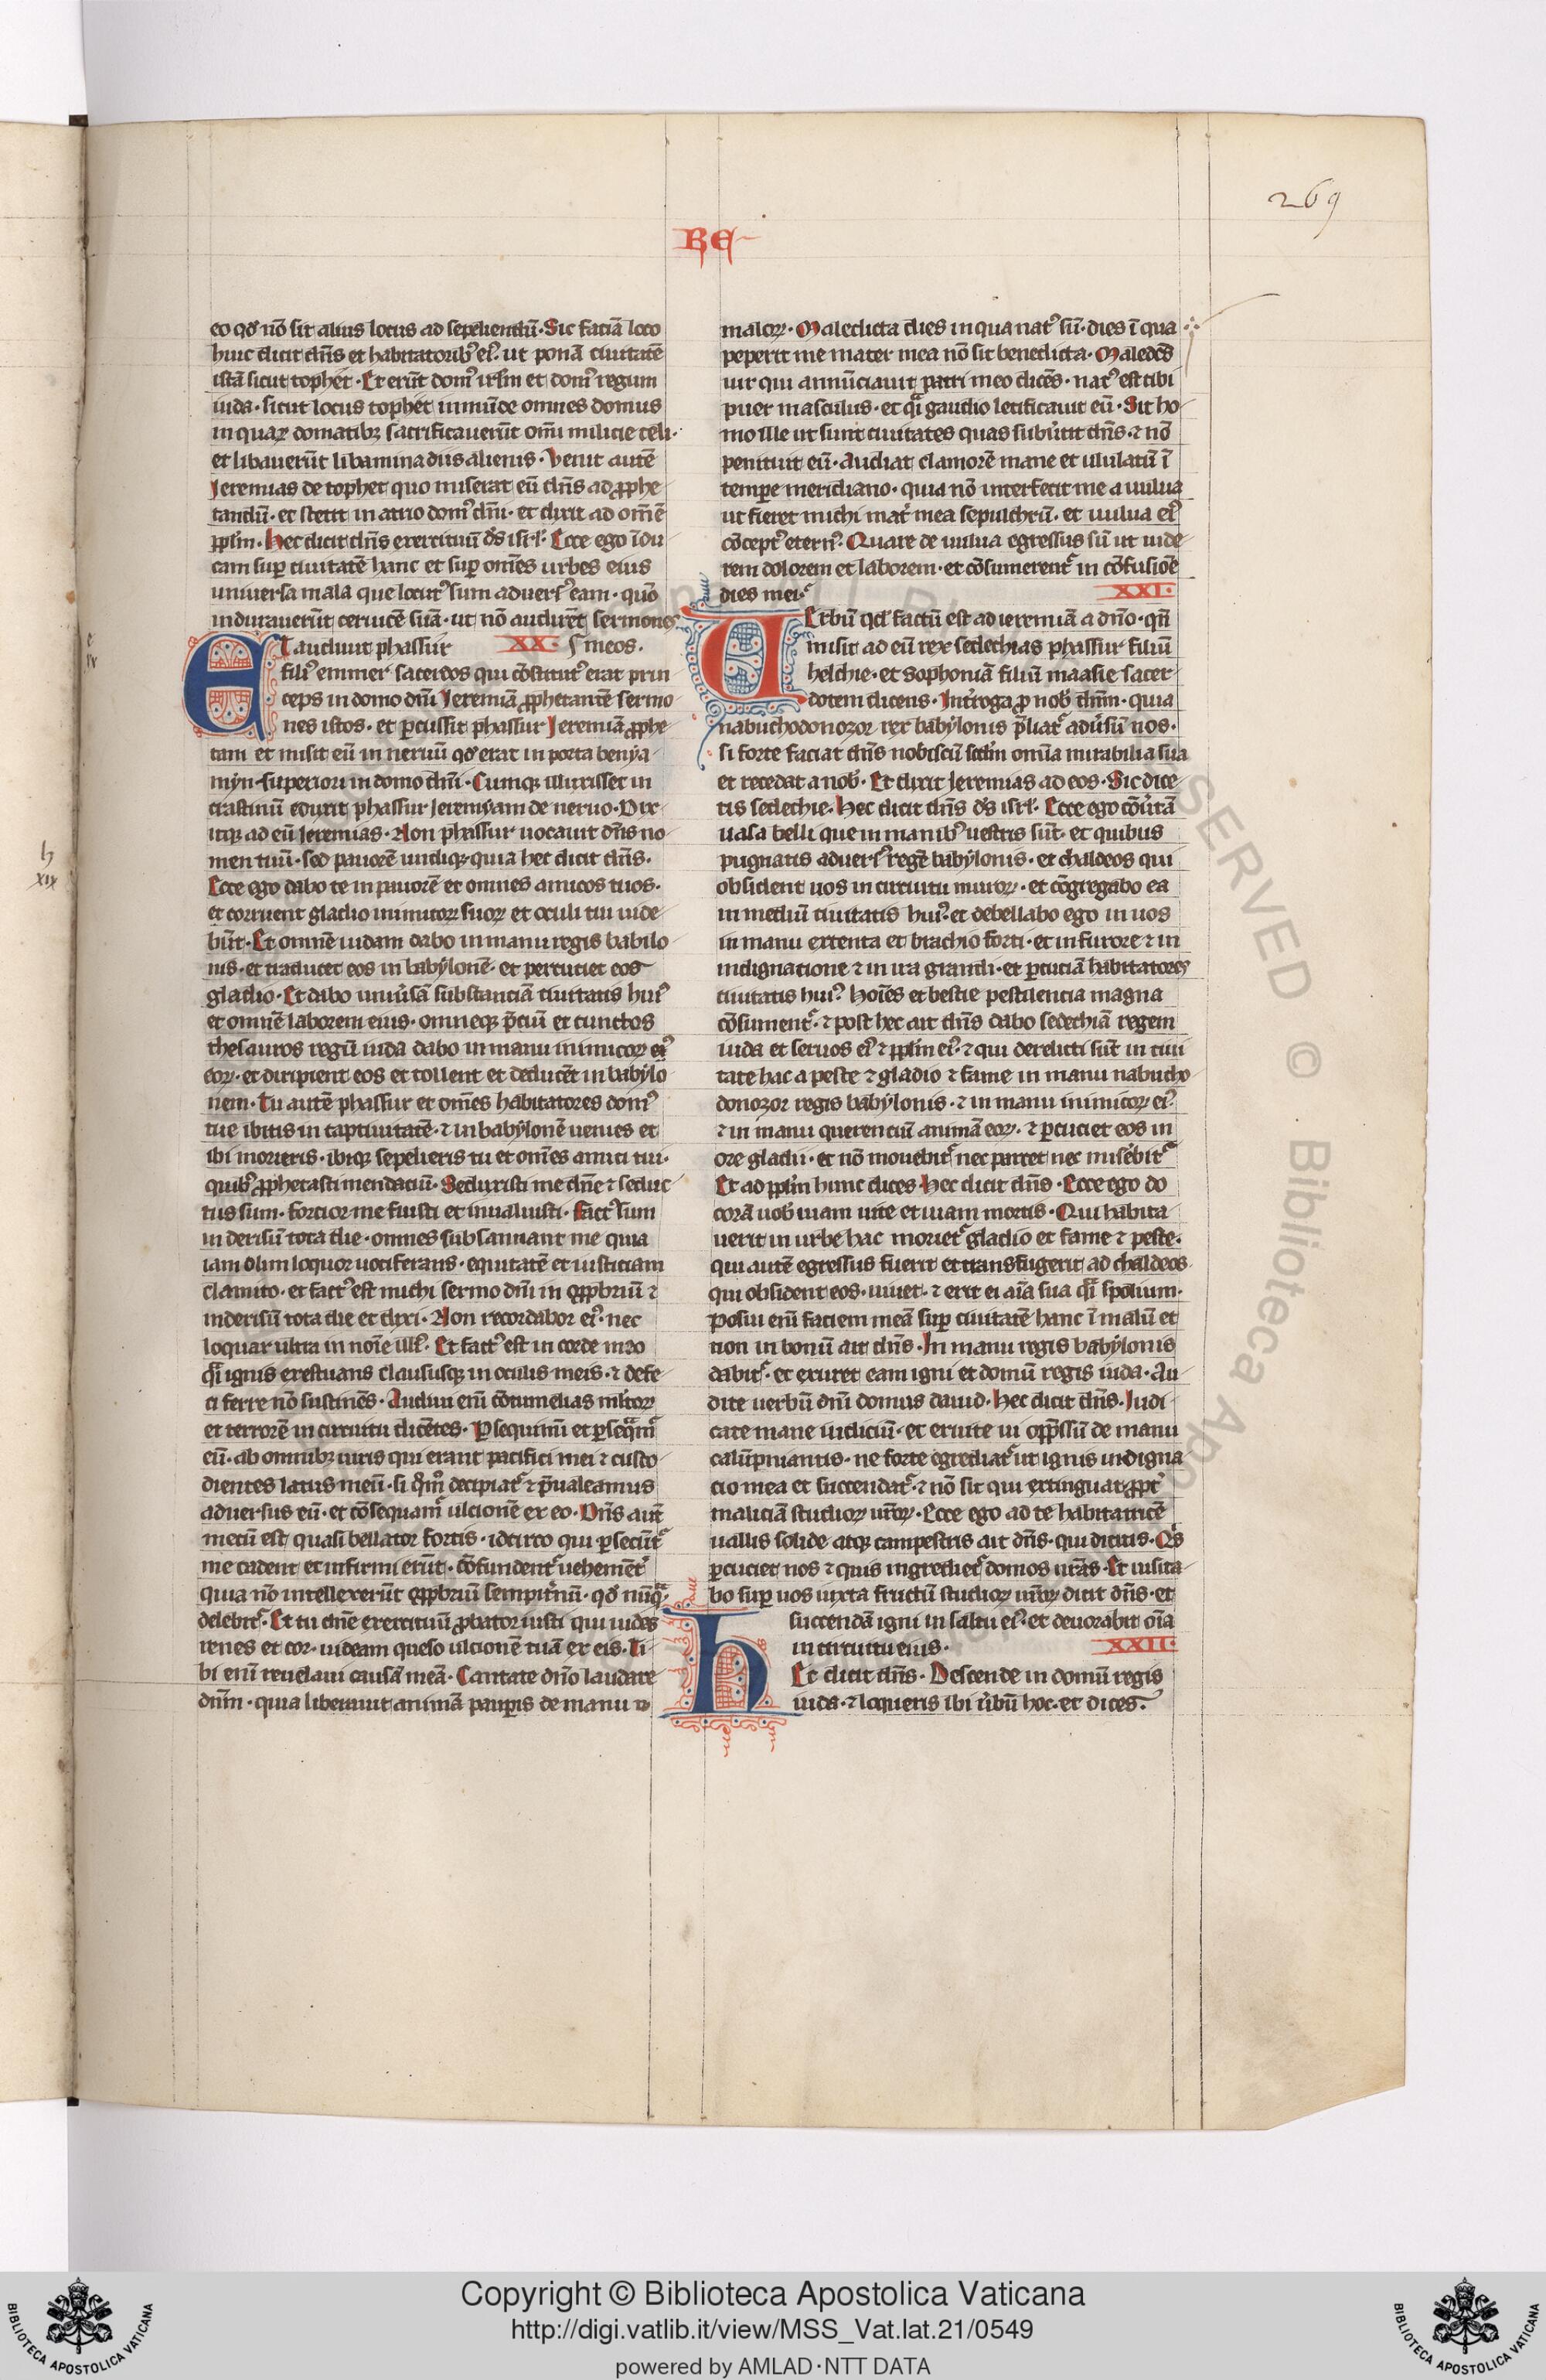 269
BE
eo qđ nō sit alius locus ad sepeliendū. Sic faciā loco
huic dicit dn̄s et habitatorib᷒ ei᷒. ut ponā ciuitatē
istā sicut tophet. Et erūt dom᷒ irl̄m et dom᷒ regum
iuda. sicut locus tophet inmūde omnes domus
in quaꝝ domatibꝫ sacrificauerūt om̄i milicie celi.
et libauerūt libamina diis alienis. Venit autē
Jeremias de tophet quo miserat eū dn̄s ad ꝓphe
tandū. et stetit in atrio dom᷒ dn̄i. et dixit ad om̄ē
ppl̄m. Hec dicit dn̄s exercituū d̄s isrl̄. Ecce ego īdu
cam suꝑ ciuitatē hanc et suꝑ om̄es urbes eius
uniuersa mala que locut᷒ sum aduers᷒ eam. quō
indurauerūt ceruicē suā. ut nō audirēt sermones
XX. meos.
ET audiuit phassur
fili᷒ emmer sacerdos qui cōstitut᷒ erat prin
ceps in domo dn̄i Jeremiā ꝓphetantē sermo
nes istos. et ꝑcussit phassur Jeremiā ꝓphe
tam et misit eū in neruū qđ erat in porta benẏa
mẏn superiori in domo dn̄i. Cumqꝫ illuxisset in
crastinū eduxit phassur Jeremẏam de neruo. Dix
itqꝫ ad eū Jeremias. Non phassur uocauit dn̄s no
men tuū. sed pauorē undiqꝫ quia hec dicit dn̄s.
Ecce ego dabo te in pauorē et omnes amicos tuos.
et corruent gladio inimicoꝝ suoꝝ et oculi tui uide
būt. Et omnē iudam dabo in manu regis babilo
nis. et traducet eos in babẏlonē. et percuciet eos
gladio. Et dabo uniu̓sā substanciā ciuitatis hui᷒
et omnē laborem eius. omneqꝫ p̄ciū et cunctos
thesauros regū iuda dabo in manu inimicoꝝ ei᷒
eoꝝ. et diripient eos et tollent et deducēt in babẏlo
nem. Tu autē phassur et om̄es habitatores dom᷒
tue ibitis in captiuitatē. ⁊ in babẏlonē uenies et
ibi morieris. ibiqꝫ sepelieris tu et om̄es amici tui.
quib᷒ ꝓphetasti mendaciū. Seduxisti me dn̄e ⁊ seduc
tus sum. forcior me fuisti et inualuisti. fact᷒ sum
in derisū tota die. omnes subsannant me quia
iam olim loquor uociferans. equitatē et iusticiam
clamito. et fact᷒ est michi sermo dn̄i in opꝓbriū ⁊
inderisū tota die et dixi. Non recordabor ei᷒. nec
loquar ultra in noīe illi᷒. Et fact᷒ est in corde meo
qͣi ignis exestuans claususqꝫ in ossibus meis. ⁊ defe
ci ferre nō sustinēs. Audiui eni̅ cōtumelias ml̄toꝝ
et terrorē in circuitu dicētes. Ꝑsequimi̅ et ꝑseqͣmᷓ
eū. ab omnibꝫ uiris qui erant pacifici mei ⁊ custo
dientes latus meū. si qͦmͦ decipiatᷓ ⁊ p̄ualeamus
aduersus eū. et cōsequamᷓ ulcionē ex eo. Dn̄s aut̄
mecū est quasi bellator fortis. idcirco qui ꝑsecūtᷓ
me cadent et infirmi erūt. cōfundentᷓ uehemēt̓
quia nō intellexerūt opꝓbriū sempit̓nū. qđ nūqͣ
delebitᷓ. Et tu dn̄e exercituū ꝓbator iusti qui uides
renes et cor. uideam queso ulcionē tuā ex eis. Ti
bi eni̅ reuelaui causā meā. Cantate dn̄o laudate
dn̄m. quia liberauit animā pauꝑis de manu
maloꝝ. Maledicta dies in qua nat᷒ sū. dies ī qua
peperit me mater mea nō sit benedicta. Maledc̄s
uir qui annūciauit patri meo dicēs. nat᷒ est tibi
puer masculus. et qͣi gaudio letificauit eū. Sit ho
mo ille ut sunt ciuitates quas subu̓tit dn̄s. ⁊ nō
penituit eū. Audiat clamorē mane et ululatū ī
tempore meridiano. quia nō interfecit me a uulua
ut fieret michi mat̓ mea sepulchrū. et uulua ei᷒
cōcept᷒ etern᷒. Quare de uulua egressus sū ut uide
rem dolorem et laborem. et cōsumerentᷓ in cōfusiōē
dies mei.
XXI.
VErbū qđ factū est ad ieremiā a dn̄o. qn̄
misit ad eū rex sedechias phassur filiū
helchie. et sophoniā filiū maasie sacer
dotem dicens. Int̓roga ꝓ nob̓ dn̄m. quia
nabuchodonozor rex babẏlonis p̄liatᷓ adu̓sū nos.
si forte faciat dn̄s nobiscū scdm̄ omīa mirabilia sua
et recedat a nob̓. Et dixit Jeremias ad eos. Sic dice
tis sedechie. Hec dicit dn̄s d̄s isrl̄. Ecce ego cōu̓tā
uasa belli que in manib᷒ uestris sūt. et quibus
pugnatis aduers᷒ regē babẏlonis. et chaldeos qui
obsident uos in circuitu muroꝝ. et cōgregabo ea
in mediū ciuitatis hui᷒. et debellabo ego in uos
in manu extenta et brachio forti. et in furore ⁊ in
indignatione ⁊ in ira grandi. et ꝑcuciā habitatores
ciuitatis hui᷒. hoīes et bestie pestilencia magna
cōsumentᷓ. ⁊ post hec ait dn̄s dabo sedechiā regem
iuda et seruos ei᷒ ⁊ ppl̄m ei᷒. ⁊ qui derelicti sūt in ciui
tate hac a peste ⁊ gladio ⁊ fame in manu nabucho
donozor regis babẏlonis. ⁊ in manu inimicoꝝ ei᷒.
⁊ in manu querenciū animā eoꝝ. ⁊ ꝑcuciet eos in
ore gladii. et nō mouebitᷓ nec parcet nec misēbitᷓ
Et ad ppl̄m hunc dices Hec dicit dn̄s. Ecce ego do
corā uob̓ uiam uite et uiam mortis. Qui habita
uerit in urbe hac morietᷓ gladio et fame ⁊ peste.
qui autē egressus fuerit et transfugerit ad chaldeos
qui obsident eos. uiuet. ⁊ erit ei aīa sua qͣi spolium.
Posui eni̅ faciem meā suꝑ ciuitatē hanc ī malū et
non in bonū ait dn̄s. In manu regis babẏlonis
dabitᷓ. et exuret eam igni et domū regis iuda. Au
dite uerbū dn̄i domus dauid. Hec dicit dn̄s. Judi
cate mane iudiciū. et eruite ui opp̄ssū de manu
calūpniantis. ne forte egrediatᷓ ut ignis indigna
cio mea et succendatᷓ. ⁊ nō sit qui extinguat ꝓpt̓
maliciā studioꝝ ur̄oꝝ. Ecce ego ad te habitatricē
uallis solide atqꝫ campestris ait dn̄s. qui dicitis. Qͥs
ꝑcuciet nos ⁊ quis ingredietᷓ domos nr̄as. Et uisita
bo suꝑ uos iuxta fructū studioꝝ ur̄oꝝ dicit dn̄s. et
succendā igni in saltu ei᷒. et deuorabit oīa
in circuitu eius.
XXII.
hEc dicit dn̄s. Descende in domū regis
iuda. ⁊ loqueris ibi u̓bū hoc. et dices.
h
xix
Copyright © Biblioteca Apostolica Vaticana
http://digi.vatlib.it/view/MSS_Vat.lat.21/0549
powered by AMLAD·NTT DATA
BIBLIOTECA APOSTOLICA VATICANA
BIBLIOTECA APOSTOLICA VATICANA